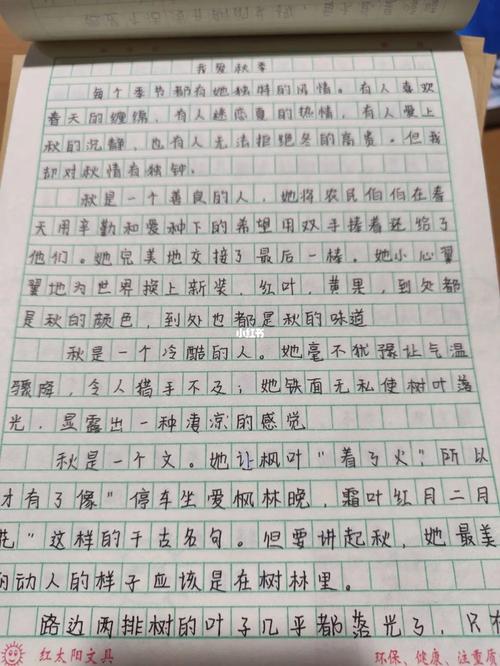 我爱秋季
每个季节都有她独特的风情。有人喜欢
春天的缠绵，有人迷恋夏的热情，有人爱上
秋的沉静，也有人无法拒绝冬的高贵。但我
却对秋情有独钟。
秋是一个善良的人，她将农民伯伯在春
天用辛勤和爱种下的希望用双手捧着还给了
他们。她完美地交接了最后一棒。她小心翼
翼地为世界换上新装，红叶，黄果，到处都
是秋的颜色，到处也都是秋的味道
小红书
秋是一个冷酷的人。她毫不犹强让气温
骤降，令人猎手不及；她铁面无私使树叶落
光，显露出一种凄凉的感觉
秋是一个文。她让枫叶"着了火"，所以
才有了像"停车坐爱枫林晚，霜叶红月二月
花"这样的千古名句。但要讲起秋，她最美
的动人的样子应该是在树林里。
路边两排树的叶子几乎都落光了，只有
红太阳文具 环保、健康、注重质